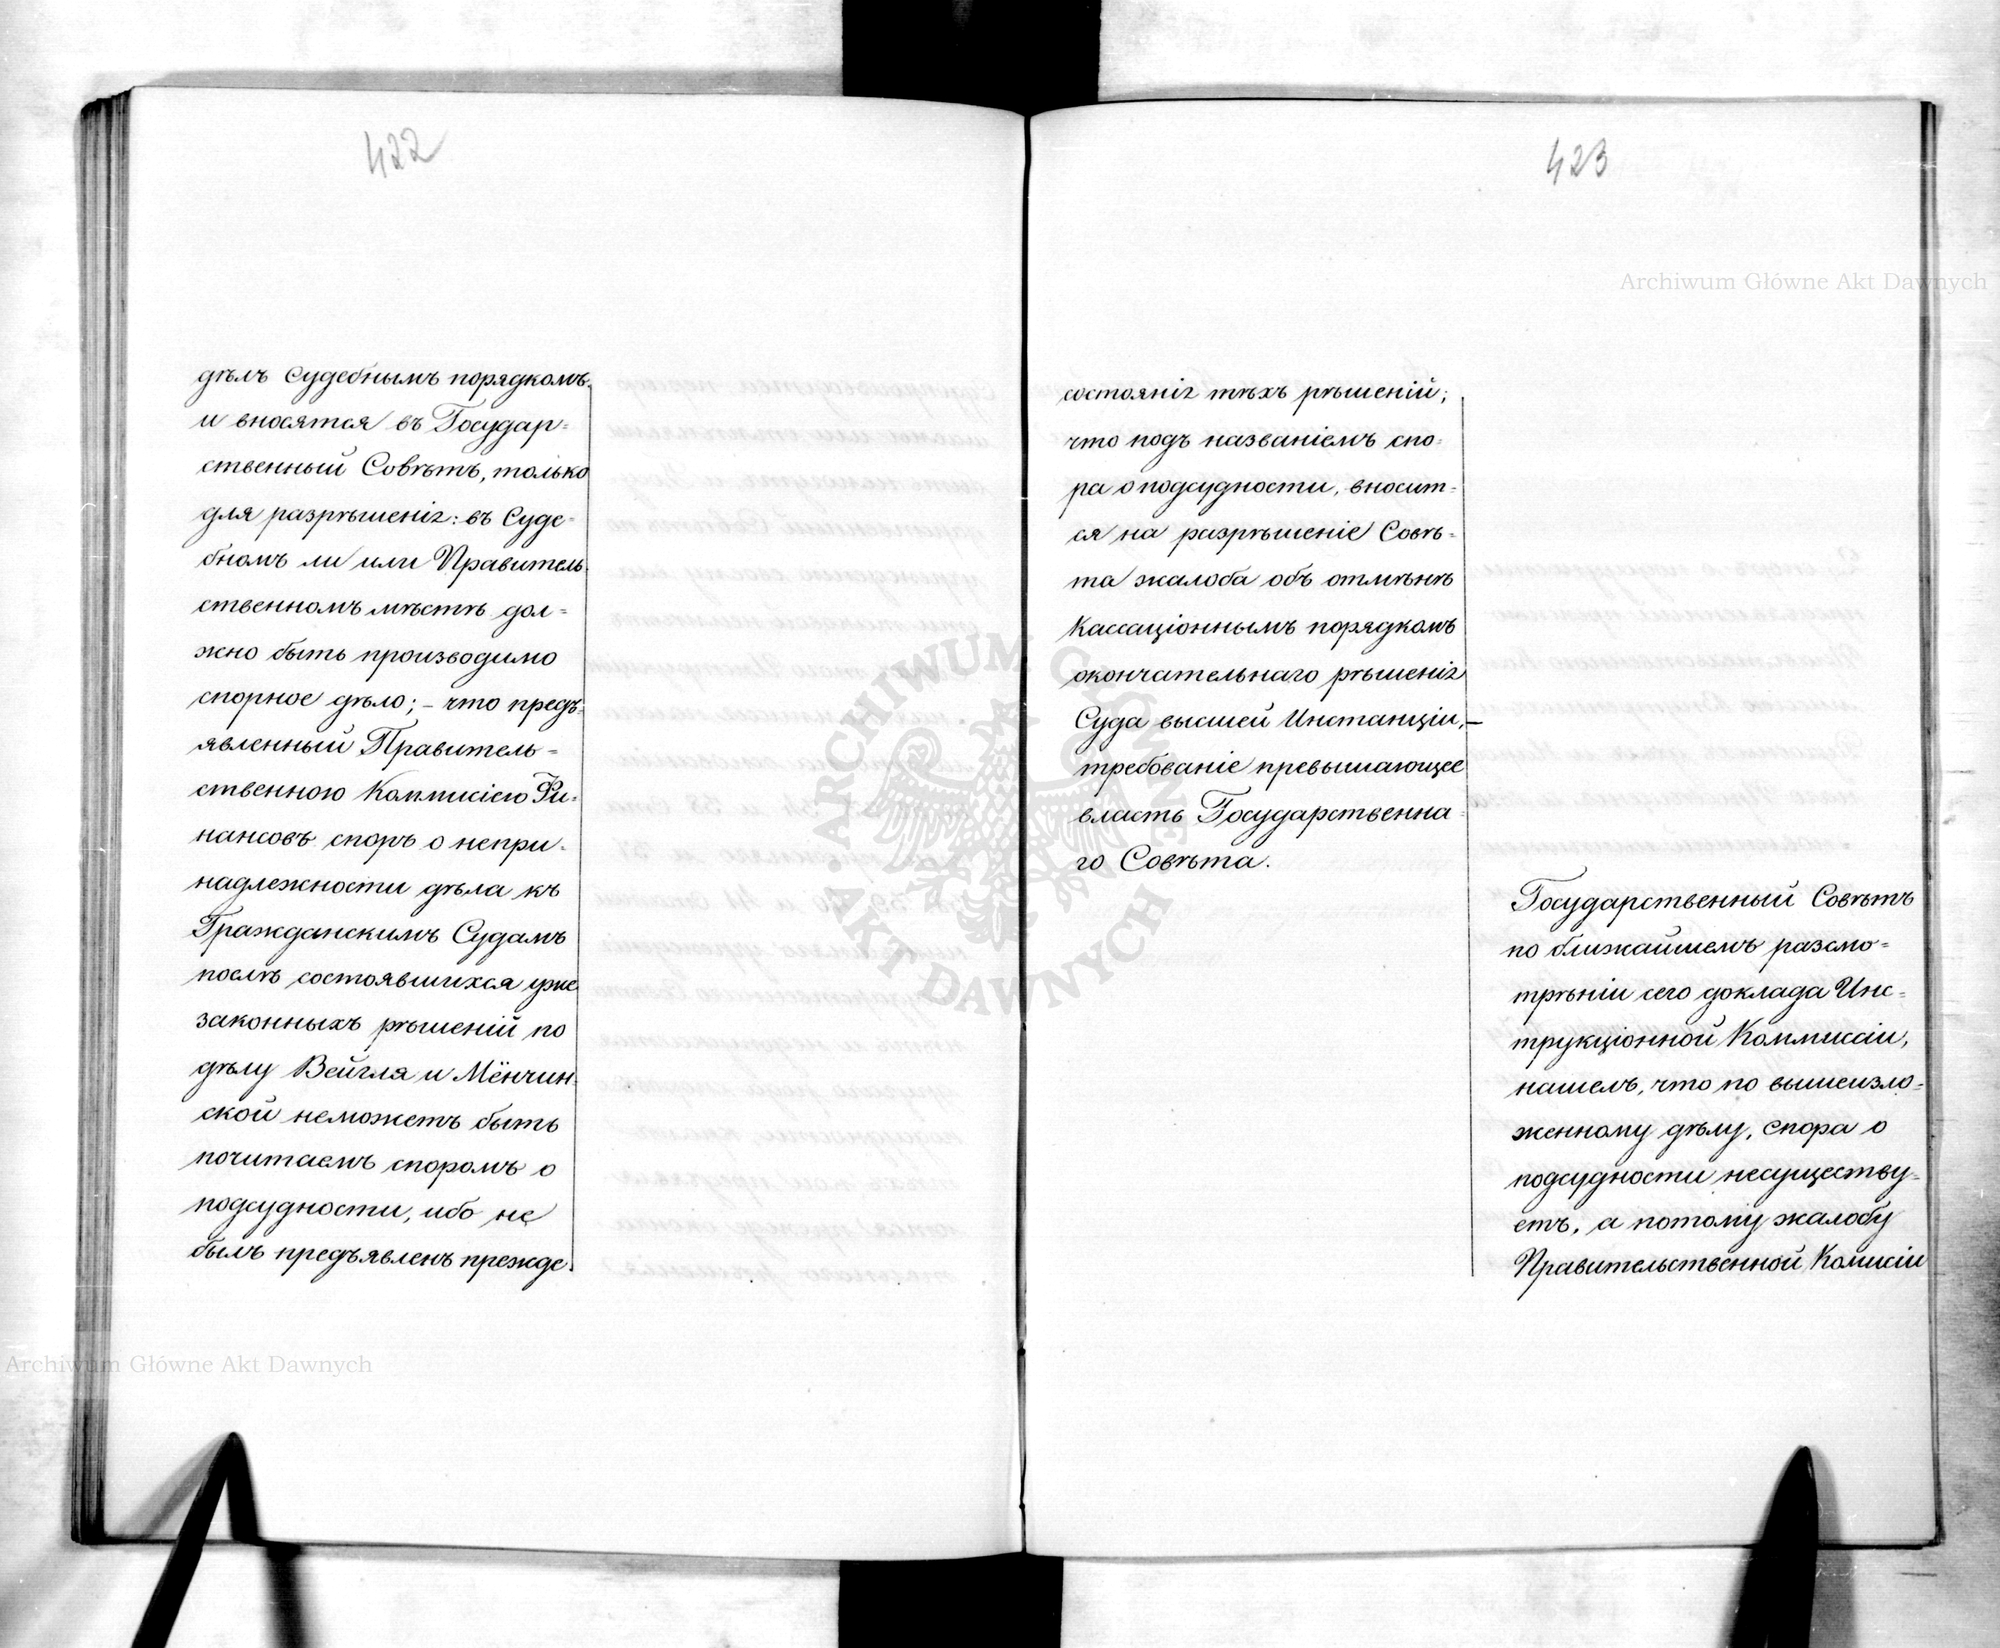 422
дѣлъ Судебнымъ порядкомъ,
и вносятся въ Государ=
ственный Совѣтъ, только
для разрѣшенія: въ Суде=
бномъ ли или Правитель=
ственномъ мѣстѣ дол=
жно быть производимо
спорное дѣло; – что предъ=
явленный Правитель=
ственною Коммисіею Фи=
нансовъ споръ о непри=
надлежности дѣла къ
Гражданскимъ Судамъ
послѣ состоявшихся уже
законныхъ рѣшеній по
дѣлу Вейгля и Мёнчин=
ской неможетъ быть
почитаемъ споромъ о
подсудности, ибо не
былъ предъявленъ прежде
423
состоянія тѣхъ рѣшеній;
что подъ названіемъ спо=
ра о подсудности, вносит=
ся на разрѣшеніе Совѣ=
та жалоба объ отмѣнѣ
Кассаціоннымъ порядкомъ
окончательнаго рѣшенія
Суда высшей Инстанціи, –
требованіе превышающее
власть Государственна=
го Совѣта.
Государственный Совѣтъ
по ближайшемъ разсмо=
трѣніи сего доклада Инс=
трукціонной Коммиссіи,
нашелъ, что по вышеизло=
женному дѣлу, спора о
подсудности несуществу=
етъ, а потому жалобу
Правительственной Комисіи
Archiwum Główne Akt Dawnych
Archiwum Główne Akt Dawnych
ARCHIWUM GŁÓWNE AKT DAWNYCH